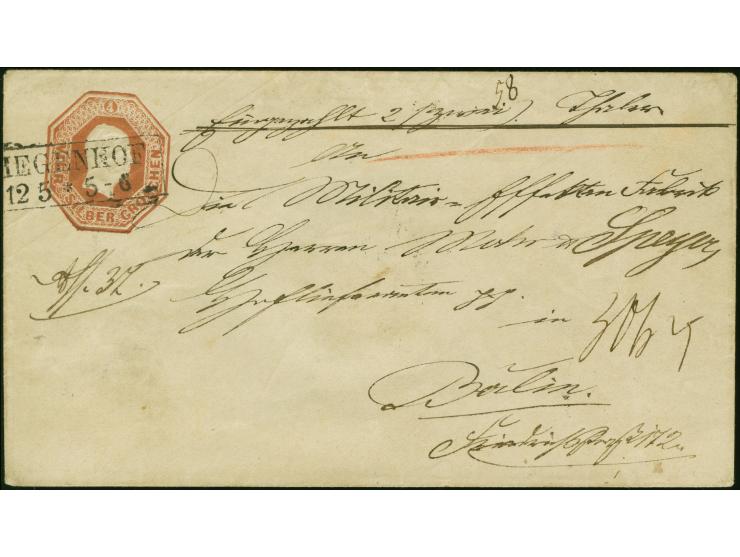 58
Eingezahlt 2 (zwei) Thaler
4
SILBER GROSCHEN
IEGENHOF
12 5 * 5-6
An
Die Militair-Effekten Fabrik
der Herren Mohr & Speyer,
No. 37.
Hoflieferanten pp.
in
Berlin.
Friedrichstraße 172.